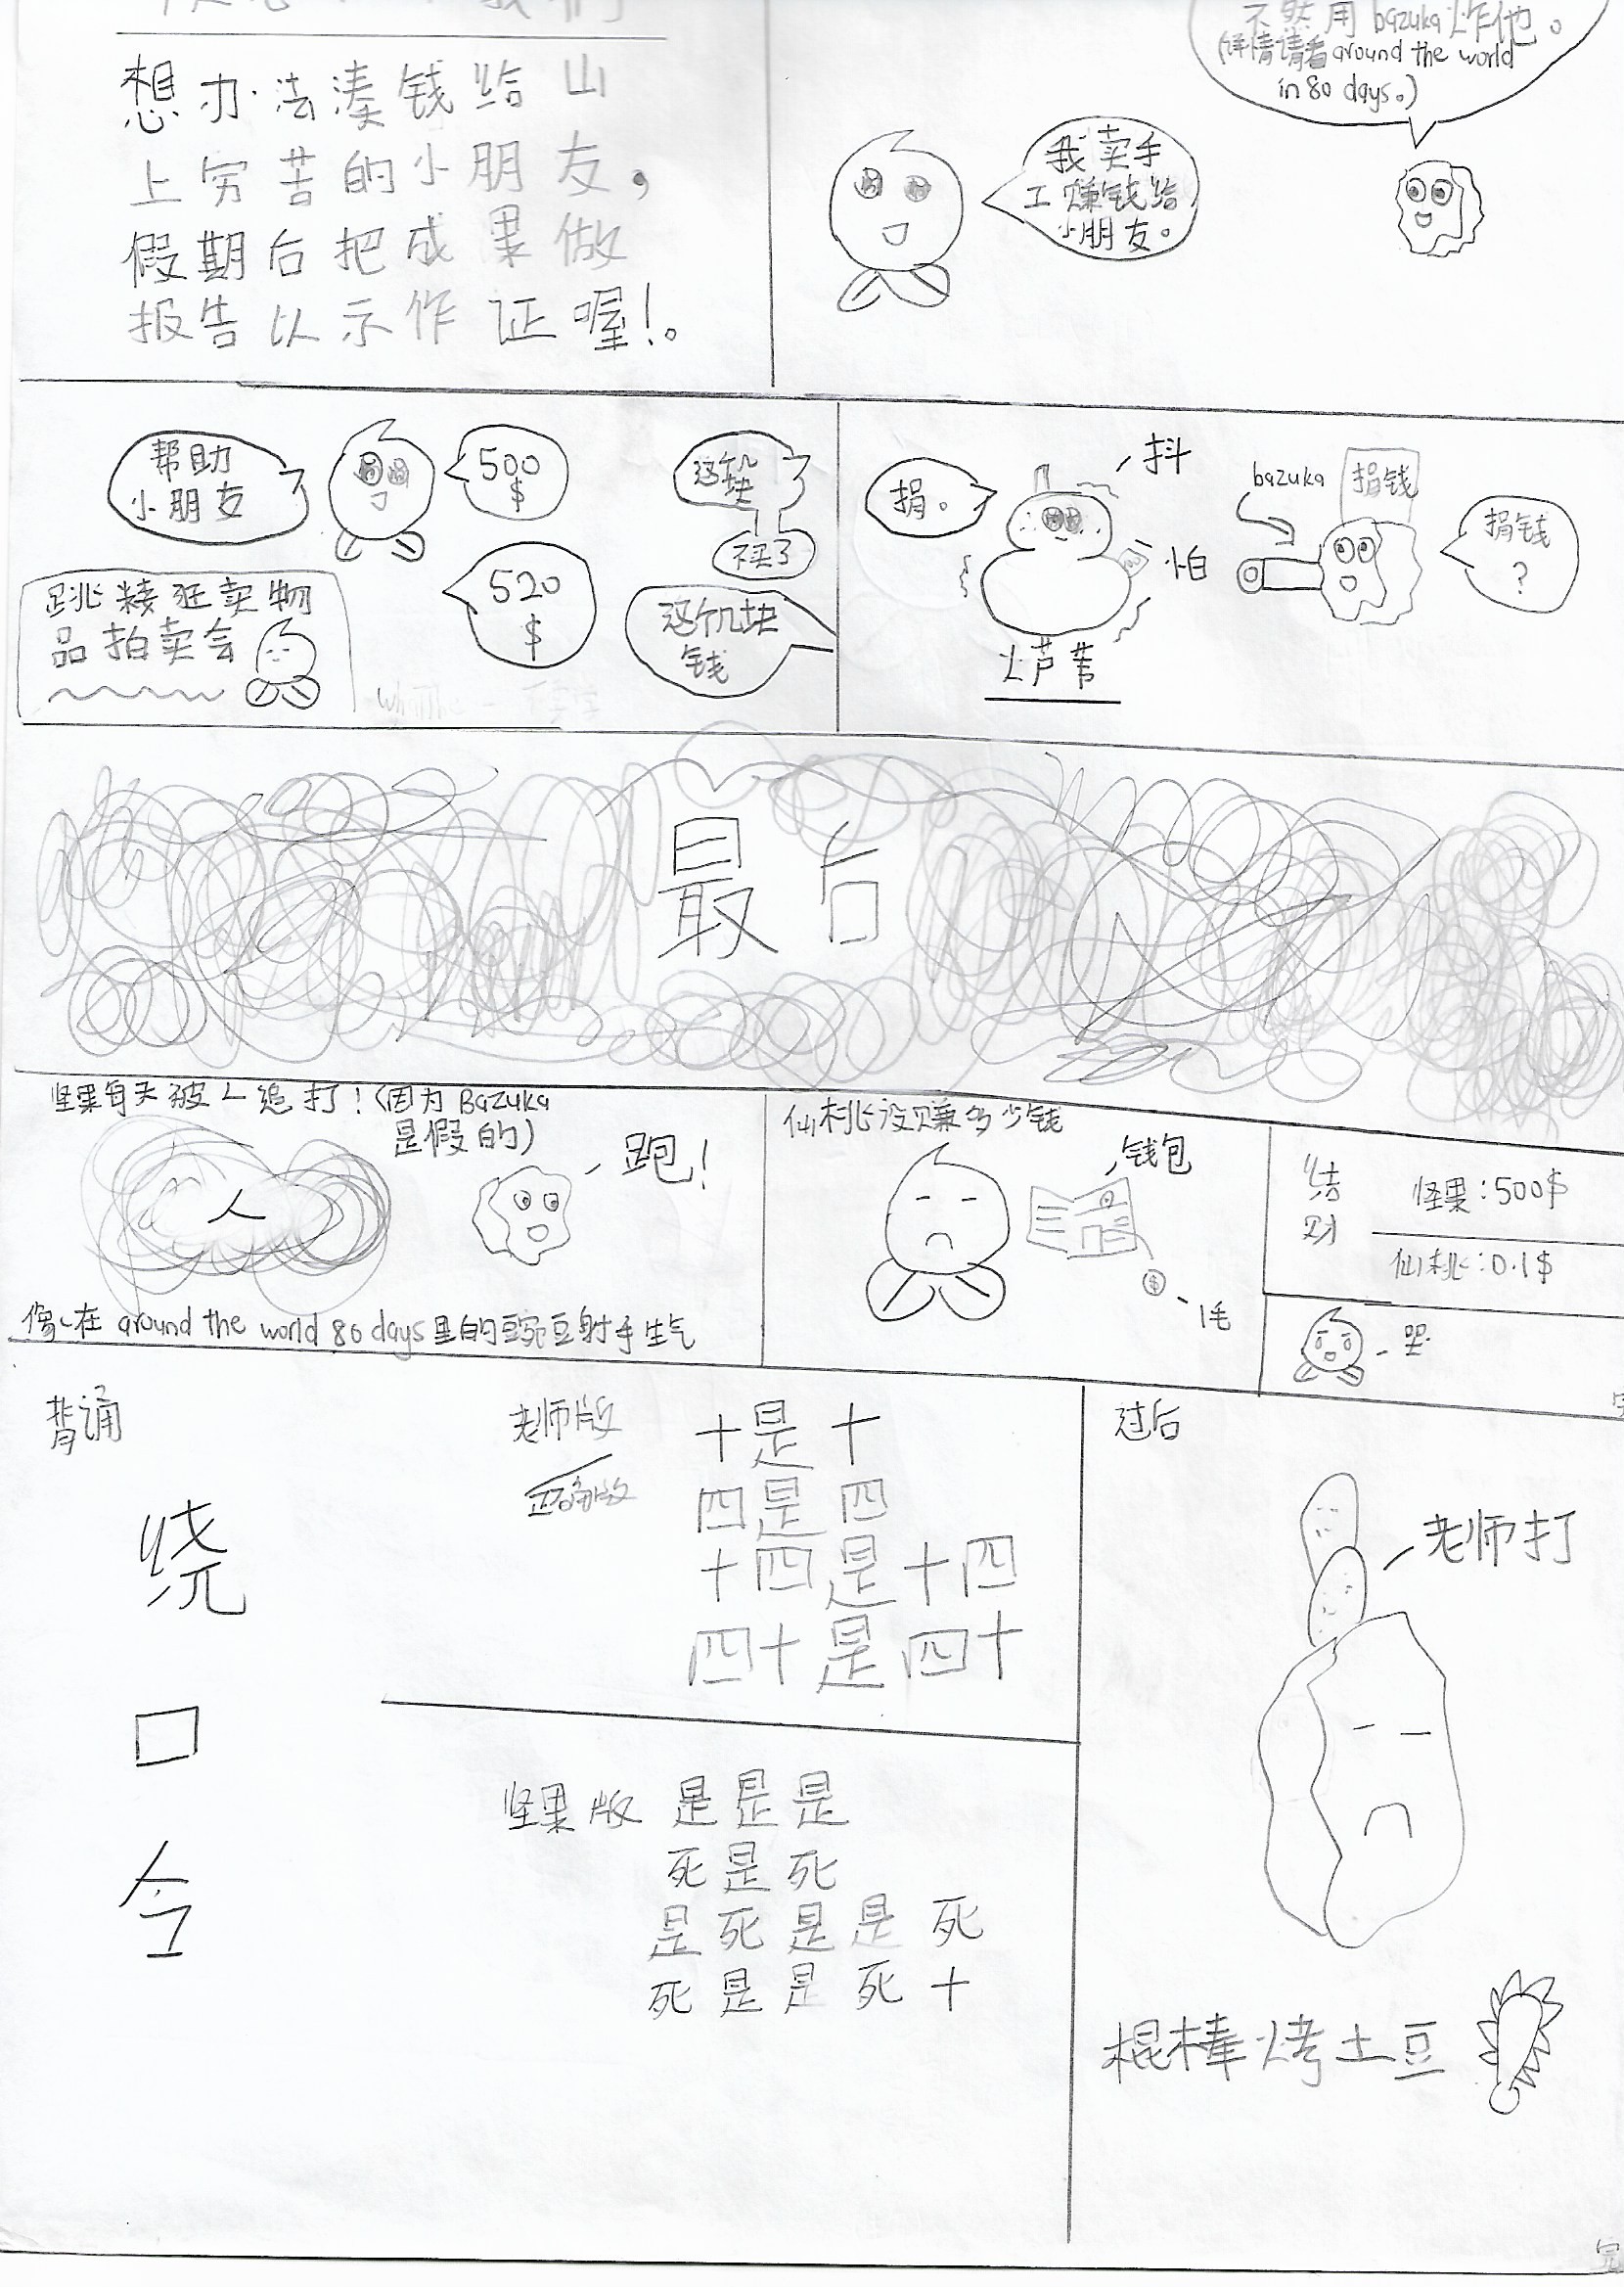 我们
想办法凑钱给山
上穷苦的小朋友，
假期后把成果做
报告以示作证喔！。
不然用bazuka炸他。
(详情请看around the world
in 80 days。)
我卖手
工赚钱给
小朋友。
帮助
小朋友
500
$
520
$
这块
不买了
这个几块
钱
物
品拍卖会
捐。
抖
怕
bazuka
捐钱
捐钱
?
最后
坚果每天被人追打！(因为Bazuka
是假的)
人
跑！
像在around the world 80 days里的豌豆射手生气
仙桃没赚多少钱
钱包
$
1毛
坚果：500$
仙桃：0.1$
哭
背诵
绕
口
令
老师版
正确版
十是十
四是四
十四是十四
四十是四十
坚果版 是是是
死是死
是死是是死
死是是死十
过后
老师打
棍棒烤土豆
完